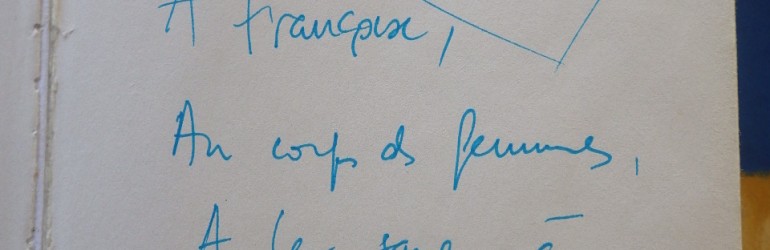 A Françoise,
Au corps des femmes,
A leur